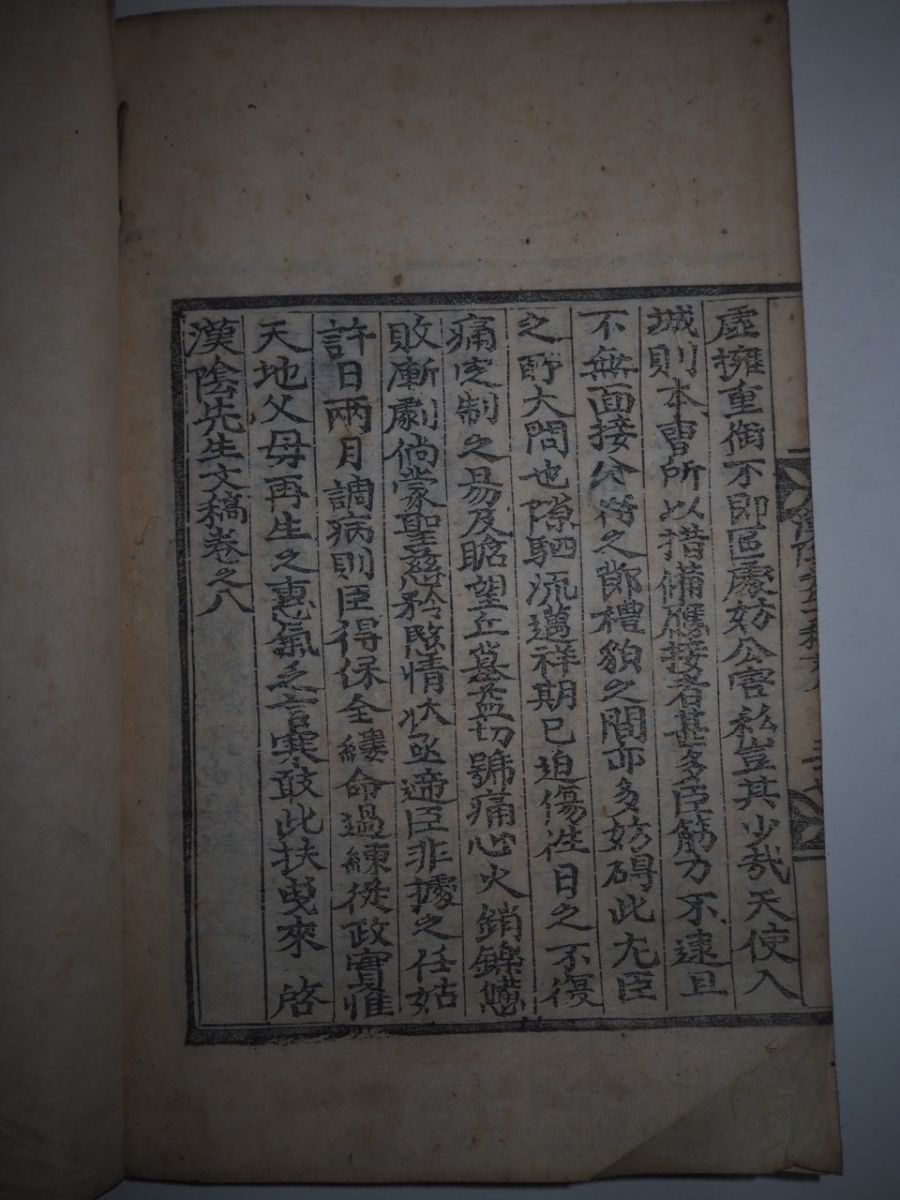 虛擁重銜不即區處妨公害私豈其少哉天使入
城則本曹所以措備應接者甚多臣筋力不逮且
不無面接分符之節禮貌之間亦多妨碍此尤臣
之大悶也隙駟流邁祥期已迫傷徃日之不復
痛定制之易及瞻望丘墓益切號痛心火銷鑠憊
敗漸劇倘蒙聖慈矜愍情状亟遞臣非據之任姑
許日兩月調病則臣得保全縷命過練從政實惟
天地父母再生之惠氣乏言寒敢此扶曳來啓
漢陰先生文稿卷之八
漢陰先生文稿卷八